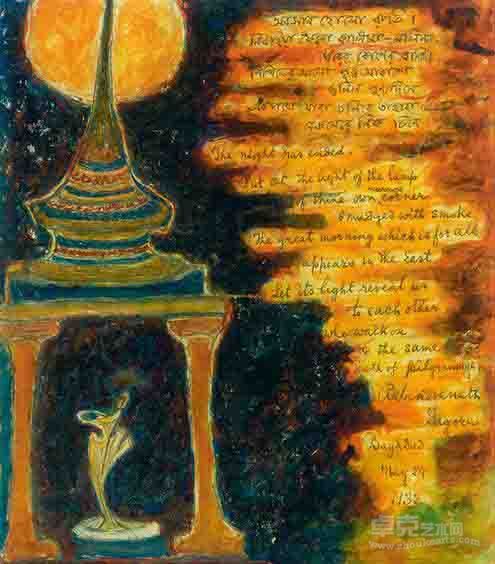 অবসান হোলো রাতি।
নিবাইয়া ফেলো কালিমা-মলিন
ঘরের কোণের বাতি।
নিখিলের আলো পূর্ব আকাশে
জ্বলিল পুণ্যদিনে
একসাথে যারা চলিবে তাহারা
সকলেরে নিক চিনে
The night has ended.
Put out the light of the lamp
of thine own narrow corner
smudged with smoke
The great morning which is for all
appears in the east
Let its light reveal us
to each other
who walk on
the same
path of pilgrimage
Rabindranath
Tagore
Baghdad
May 24
卓克艺术网
www.zhuokearts.com